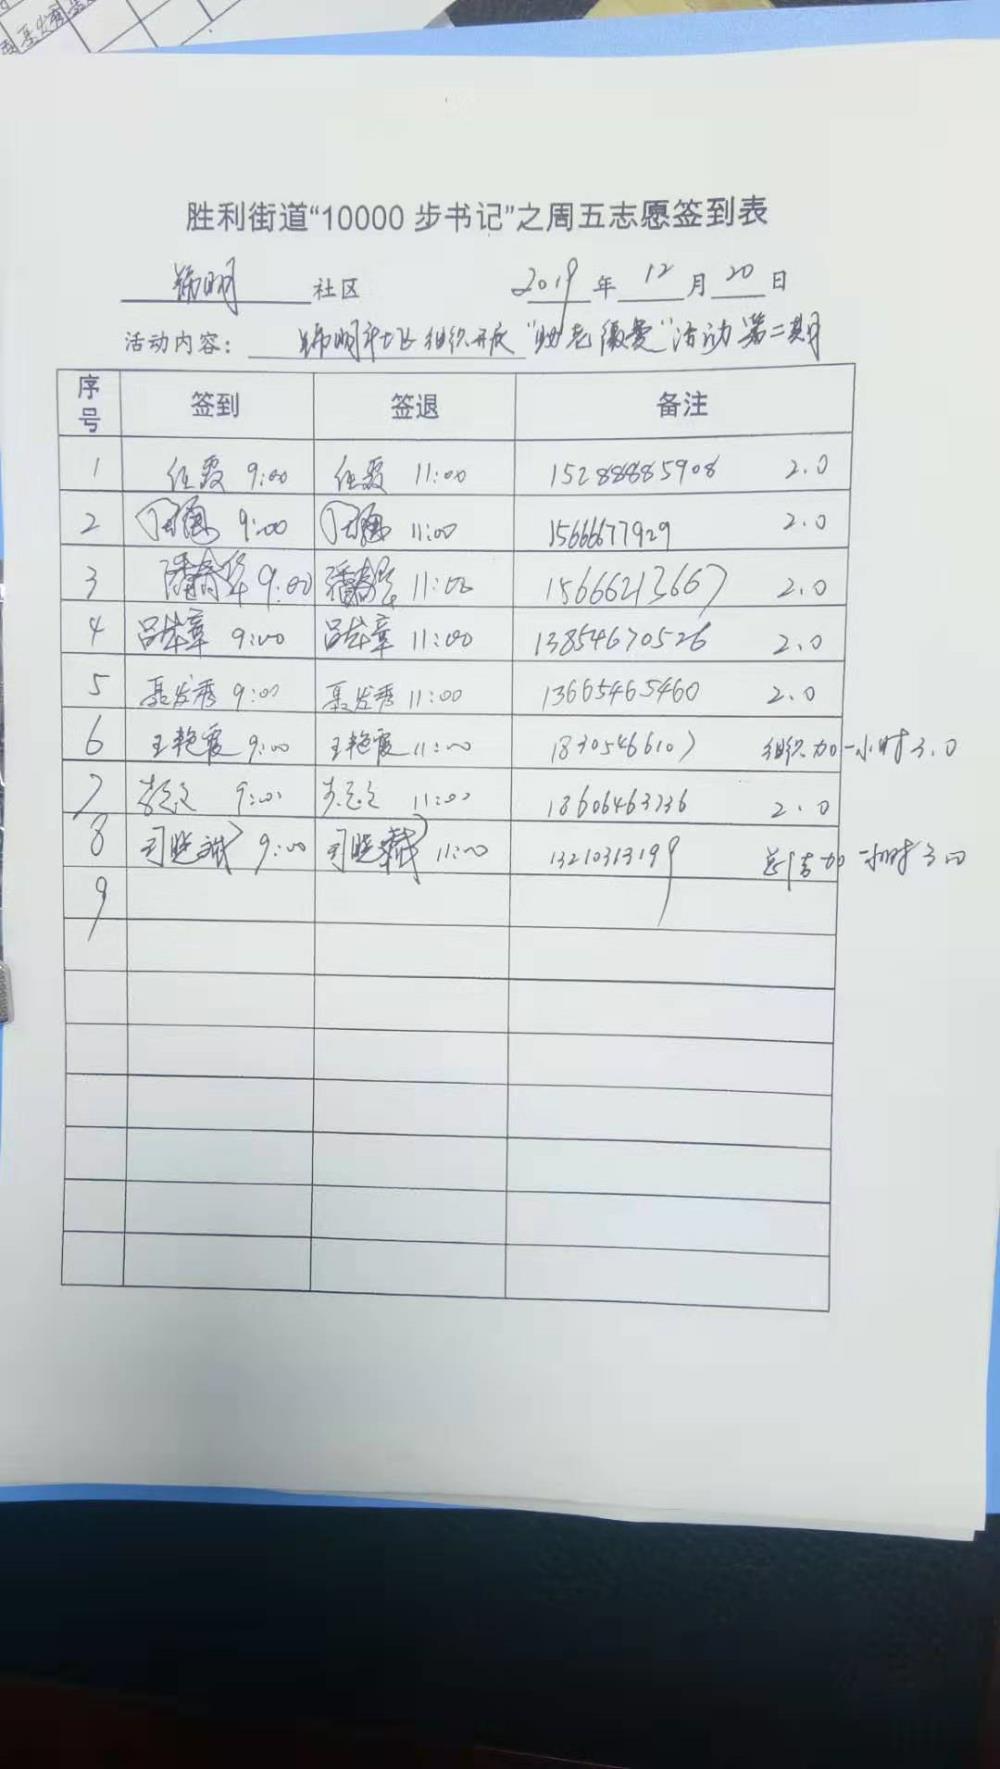 胜利街道“10000 步书记”之周五志愿签到表
锦明 社区 2019 年 12 月 20 日
活动内容： 锦明社区组织开展“助老徽爱”活动第二期
序号 签到 签退 备注
1 任霞 9:00 任霞 11:00 15288885908 2.0
2 9:00 11:00 15666677929 2.0
3 潘春华 9:00 潘春华 11:00 15666213667 2.0
4 吕本章 9:00 吕本章 11:00 13854670526 2.0
5 聂发秀 9:00 聂发秀 11:00 13665465460 2.0
6 王艳霞 9:00 王艳霞 11:00 18305466107 组织加一小时 3.0
7 9:00 11:00 18606463736 2.0
8 司晓 9:00 司晓 11:00 13210313199 总结加一小时 3.0
9